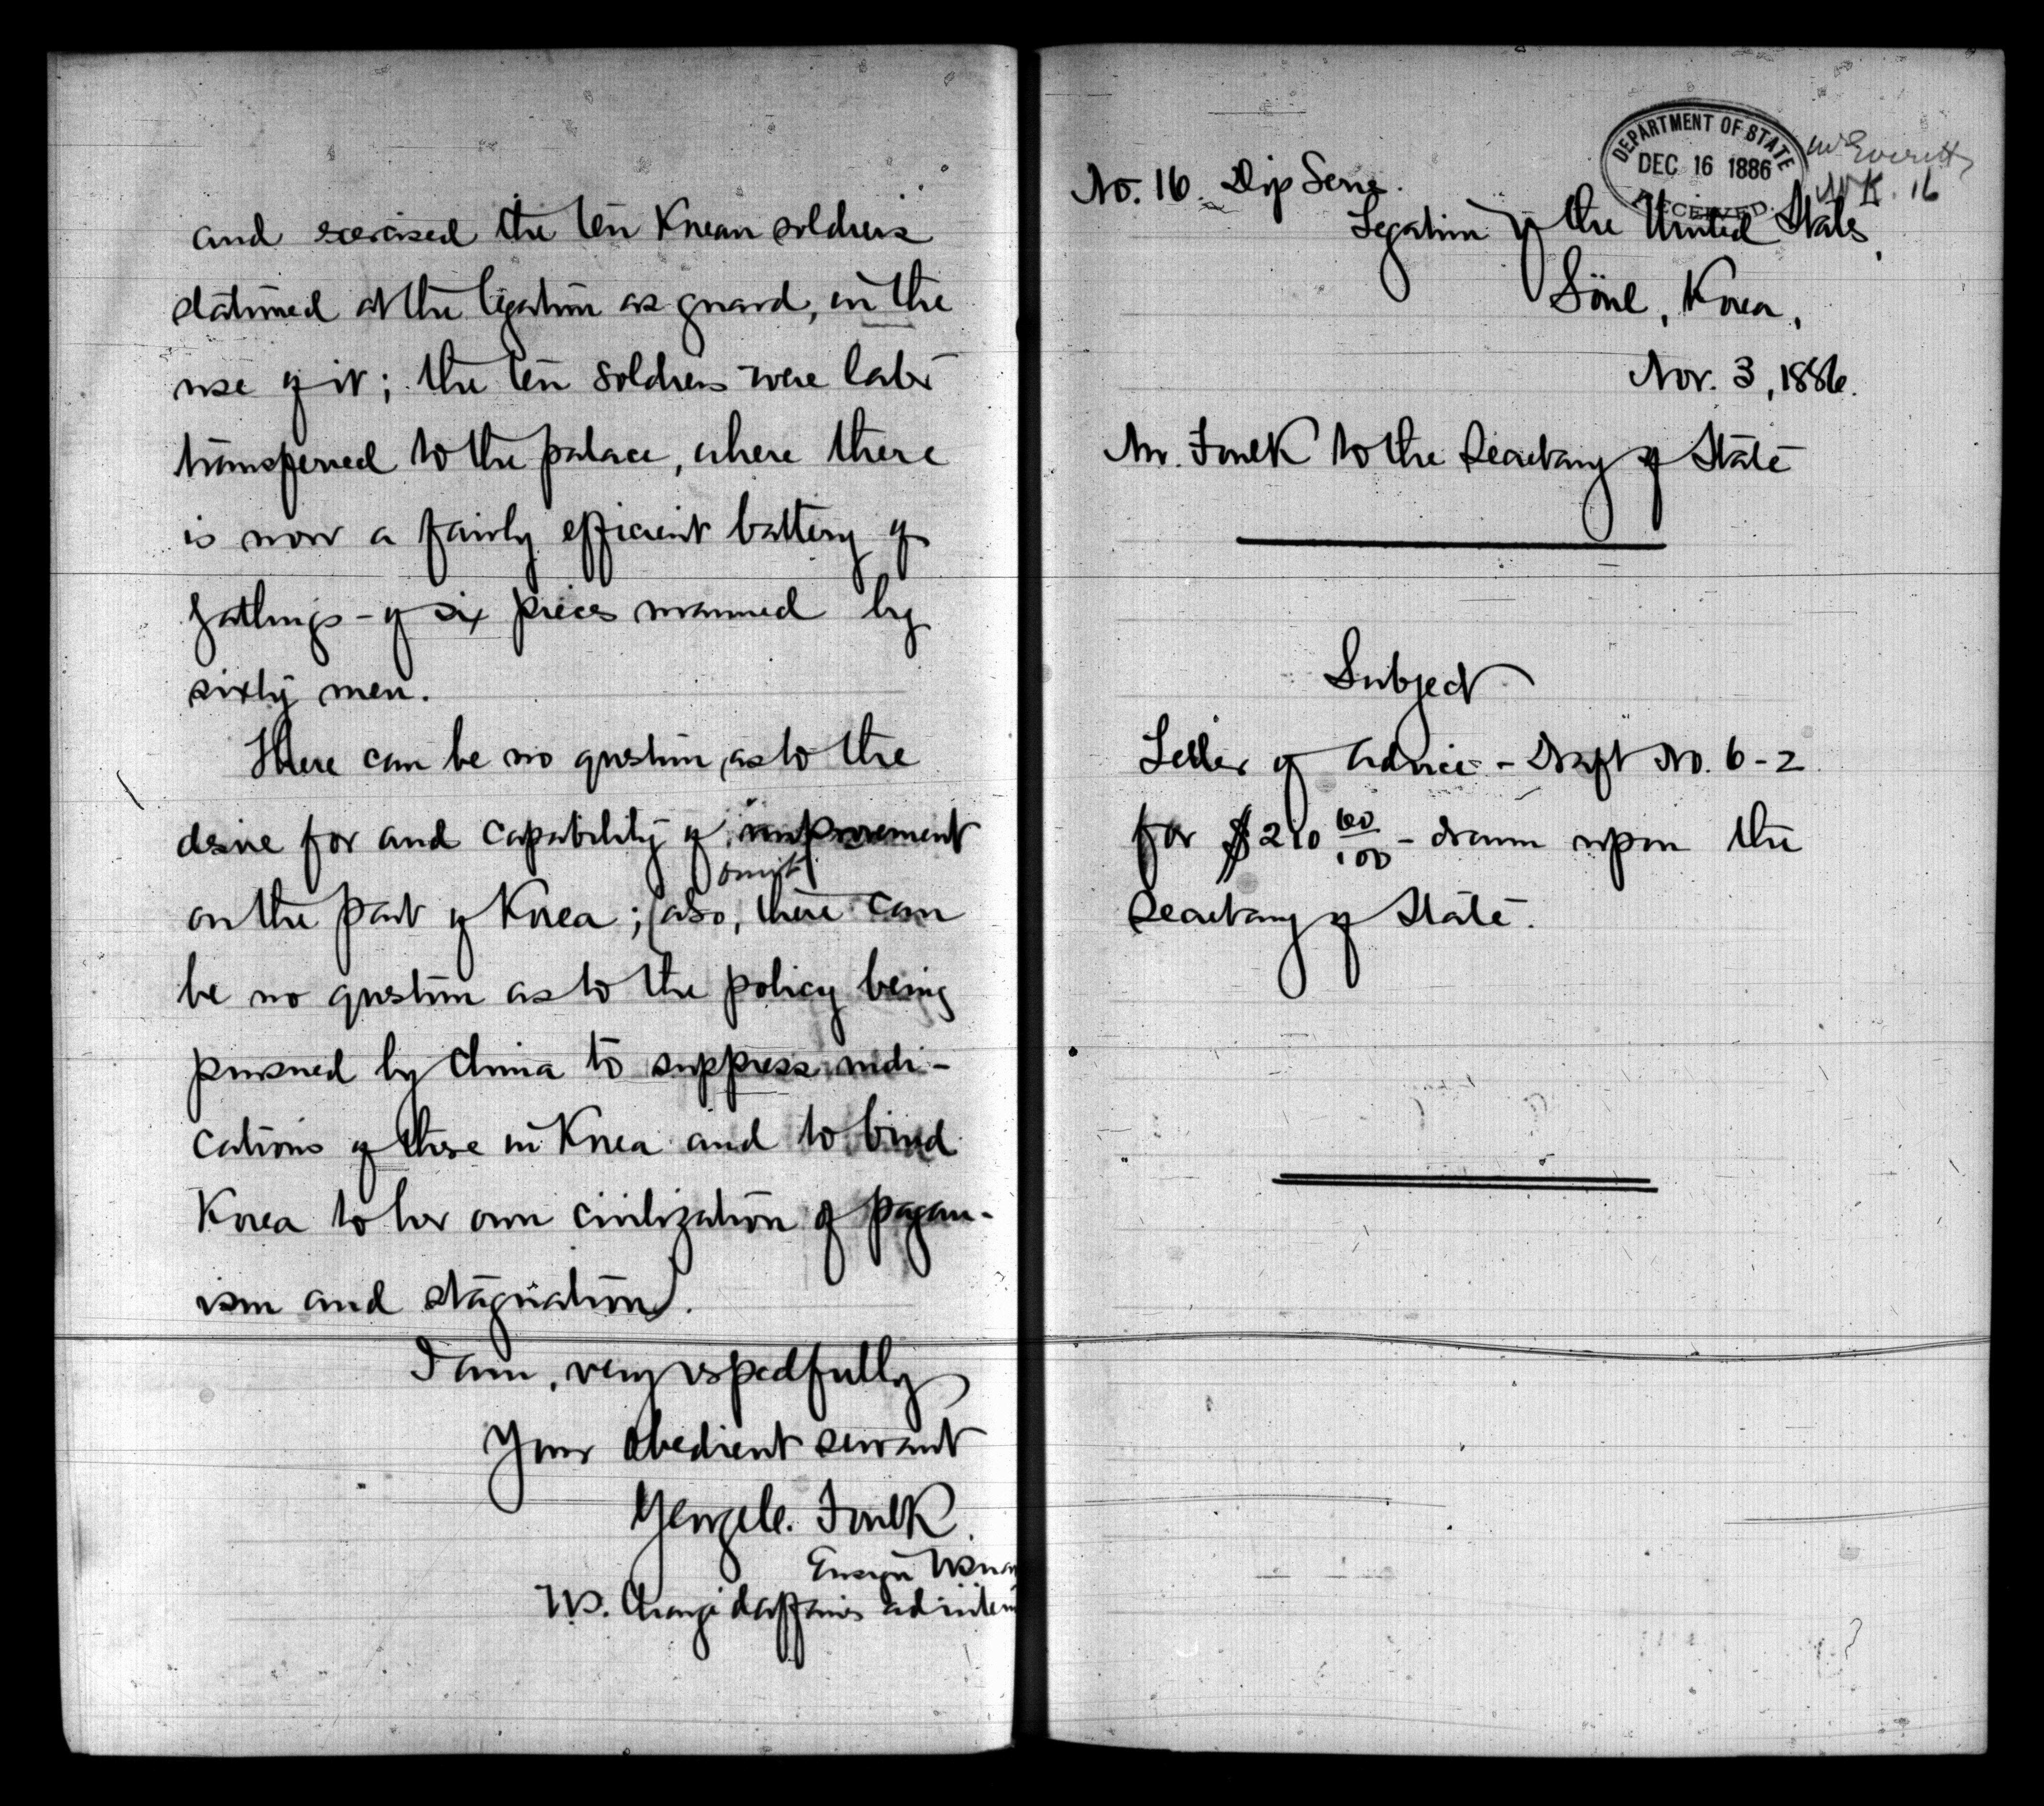 and exercised the ten Korean soldiers
stationed at the legation as guard, in the
use of it; the ten soldiers were later
transferred to the palace, where there
is now a fairly efficient battery of
gatlings - of six pieces manned by
sixty men.
There can be no question, as to the
desire for and capability of improvement
omit
on the part of Korea; (also, there can
be no question as to the policy being
pursued by China to suppress indi-
cations of these in Korea and to bind
Korea to her own civilization of pagan-
ism and stagnation).
I am, very respectfully
Your obedient servant
George C. Foulk.
Ensign
U.S. Chargé d'affaires ad interim
DEPARTMENT OF STATE
DEC 16 1886
RECEIVED.
Mr Everett
No. 16. Dip Serie.
Legation of the United States,
Söul, Korea,
Nov. 3, 1886.
Mr. Foulk to the Secretary of State
Subject
Letter of advice - Draft No. 6-2
for $210 60/100 - drawn upon the
Secretary of State.